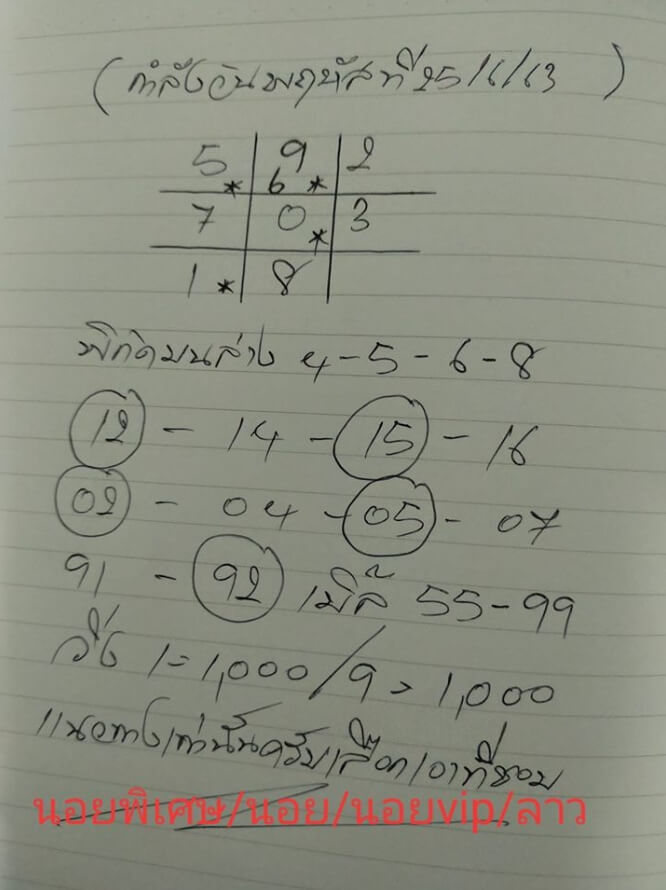 (กำลังวันพฤหัสที่ 25/6/63)
5 * | 9 6 * | 2
7 | 0 * | 3
1 * | 8 |
พิกัดบนล่าง 4-5-6-8
12 - 14 - 15 - 16
02 - 04 - 05 - 07
91 - 92 เบิ้ล 55-99
วิ่ง 1=1,000/9=1,000
แนวทางเท่านั้นครับเลือกเอาที่ชอบ
นอยพิเศษ/นอย/นอยvip/ลาว